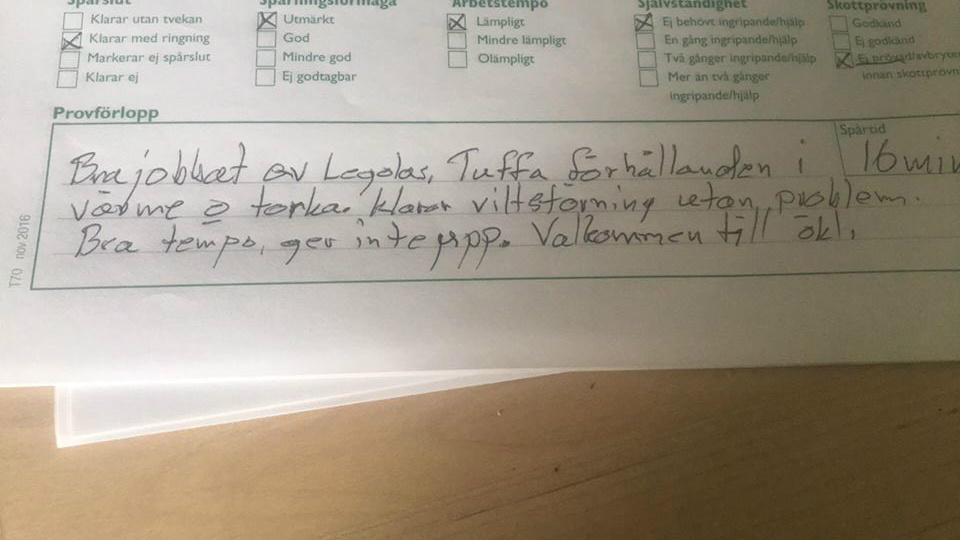 Spårslut Spårningsförmåga Arbetstempo Självständighet Skottprövning
Klarar utan tvekan Utmärkt Lämpligt Ej behövt ingripande/hjälp Godkänd
Klarar med ringning God Mindre lämpligt En gång ingripande/hjälp Ej godkänd
Markerar ej spårslut Mindre god Olämpligt Två gånger ingripande/hjälp Ej prövad/avbryter
Klarar ej Ej godtagbar Mer än två gånger innan skottprövn
ingripande/hjälp
Provförlopp
Spårtid
Bra jobbat av Legolas, Tuffa förhållanden i 16 min
värme o torka. klarar viltstörning utan problem.
Bra tempo, ger inte upp. Välkommen till ökl.
T70 nov 2016